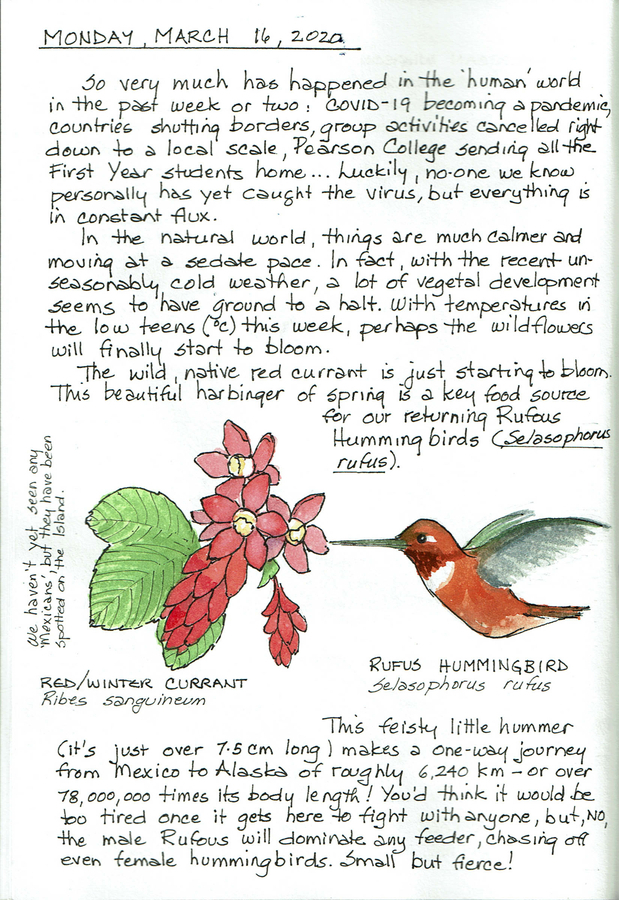 MONDAY, MARCH 16, 2020
So very much has happened in the 'human' world
in the past week or two: COVID-19 becoming a pandemic,
countries shutting borders, group activities cancelled right
down to a local scale, Pearson College sending all the
First Year students home... Luckily, no-one we know
personally has yet caught the virus, but everything is
in constant flux.
In the natural world, things are much calmer and
moving at a sedate pace. In fact, with the recent un-
seasonably cold weather, a lot of vegetal development
seems to have ground to a halt. With temperatures in
the low teens (°C) this week, perhaps the wildflowers
will finally start to bloom.
The wild, native red currant is just starting to bloom.
This beautiful harbinger of spring is a key food source
for our returning Rufous
Hummingbirds (Selasophorus
rufus).
We haven't yet seen any
'Mexicans', but they have been
spotted on the Island.
RED/WINTER CURRANT
Ribes sanguineum
RUFUS HUMMINGBIRD
Selasophorus rufus
This feisty little hummer
(it's just over 7.5 cm long) makes a one-way journey
from Mexico to Alaska of roughly 6,240 km - or over
78,000,000 times its body length! You'd think it would be
too tired once it gets here to fight with anyone, but, NO,
the male Rufous will dominate any feeder, chasing off
even female hummingbirds. Small but fierce!